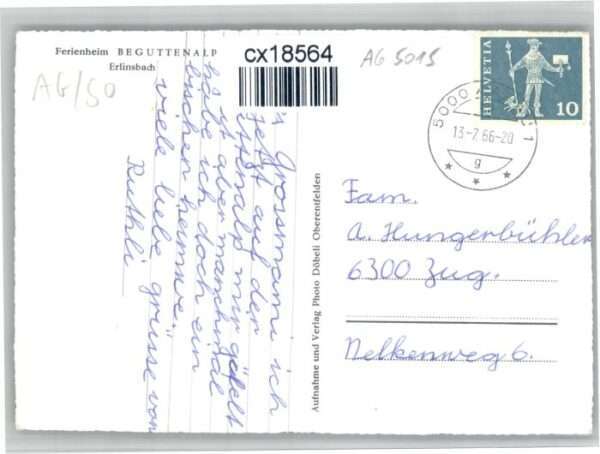 Ferienheim BEGUTTENALP
Erlinsbach
cx18564
AG 5015
AG/SO
HELVETIA
10
5000 1
13-7.66-20
g
Grossmami ich
jetzt auf der
mir gefellt
ist aber manchmal
habe ich doch ein
bischen heimwe.
viele liebe grüsse von
Ruthli
Aufnahme und Verlag Photo Döbeli Oberentfelden
Fam.
A. Hungerbühler
6300 Zug.
Nelkenweg 6.